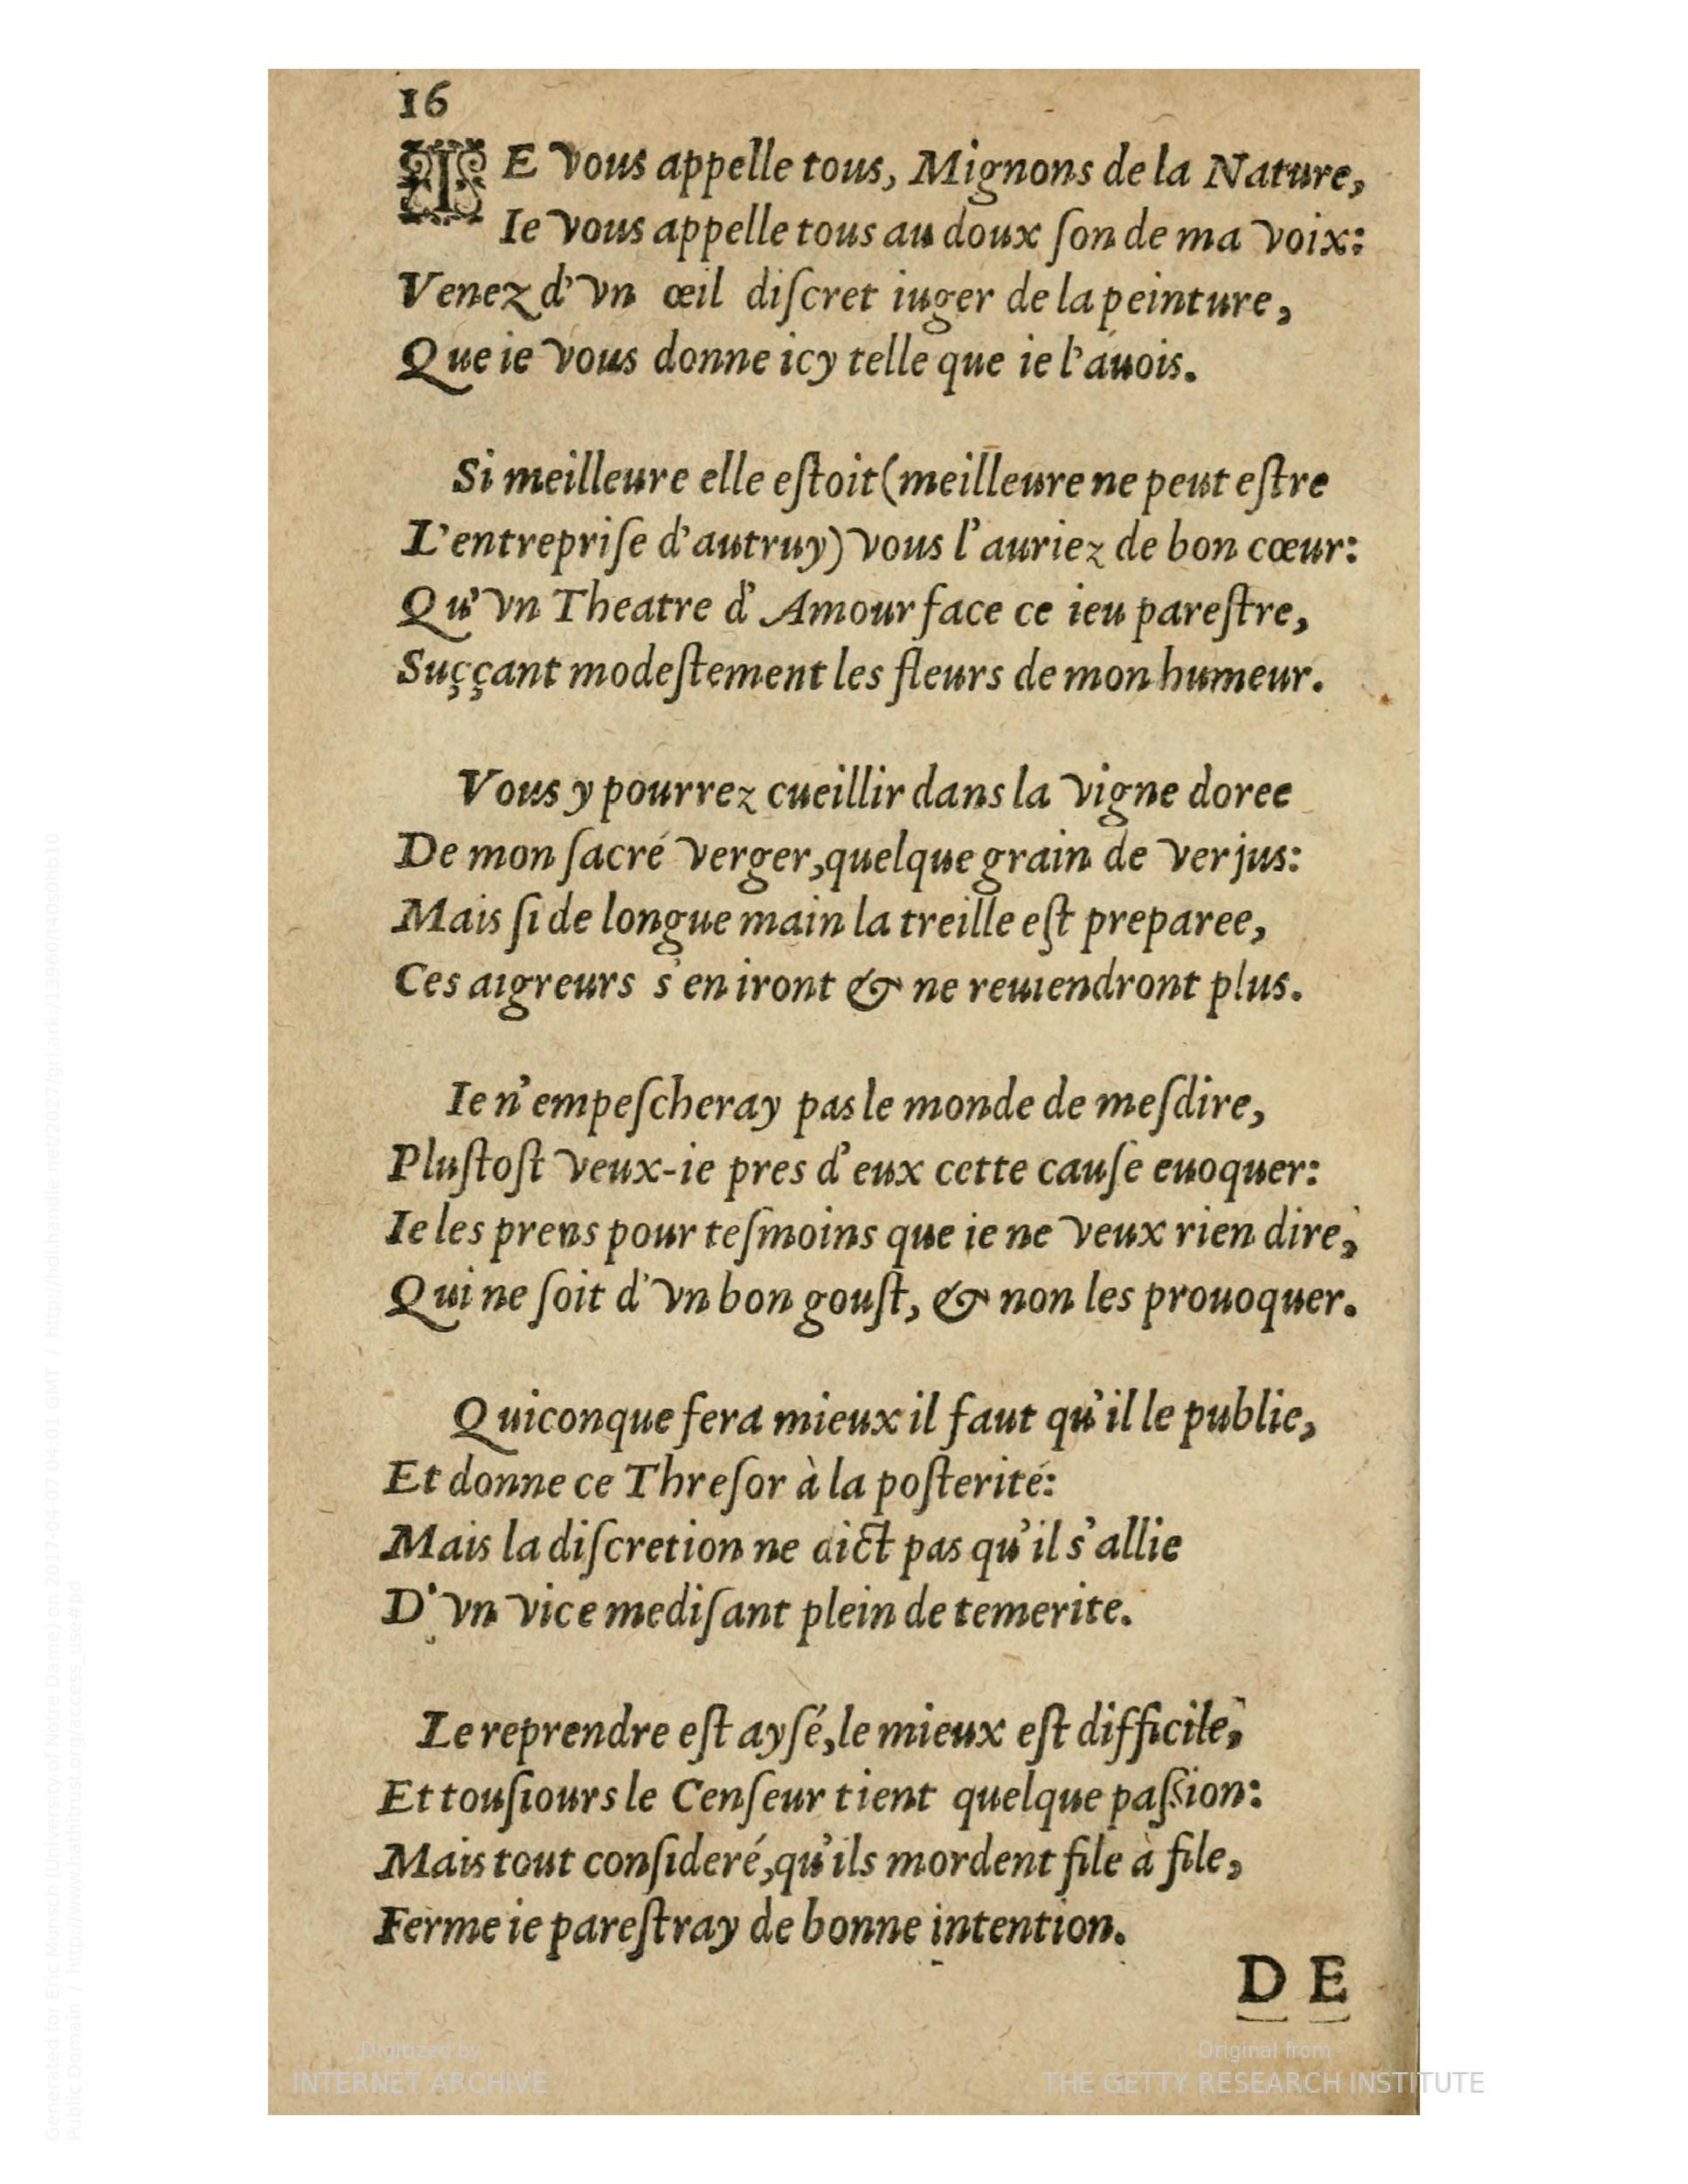 16
IE vous appelle tous, Mignons de la Nature,
Ie vous appelle tous au doux ſon de ma voix:
Venez d'vn œil diſcret iuger de la peinture,
Que ie vous donne icy telle que ie l'auois.
Si meilleure elle eſtoit (meilleure ne peut eſtre
L'entrepriſe d'autruy) vous l'auriez de bon cœur:
Qu'vn Theatre d'Amour face ce ieu pareſtre,
Suççant modeſtement les fleurs de mon humeur.
Vous y pourrez cueillir dans la vigne doree
De mon ſacré verger, quelque grain de verjus:
Mais ſi de longue main la treille eſt preparee,
Ces aigreurs s'en iront & ne reuiendront plus.
Ie n'empeſcheray pas le monde de meſdire,
Pluſtoſt veux-ie pres d'eux cette cauſe euoquer:
Ie les prens pour teſmoins que ie ne veux rien dire,
Qui ne ſoit d'vn bon gouſt, & non les prouoquer.
Quiconque fera mieux il faut qu'il le publie,
Et donne ce Threſor à la poſterité:
Mais la diſcretion ne dict pas qu'il s'allie
D'vn vice mediſant plein de temerite.
Le reprendre eſt ayſé, le mieux eſt difficile,
Et touſiours le Cenſeur tient quelque paſsion:
Mais tout conſideré, qu'ils mordent file à file,
Ferme ie pareſtray de bonne intention.
DE
Digitized by
INTERNET ARCHIVE
Original from
THE GETTY RESEARCH INSTITUTE